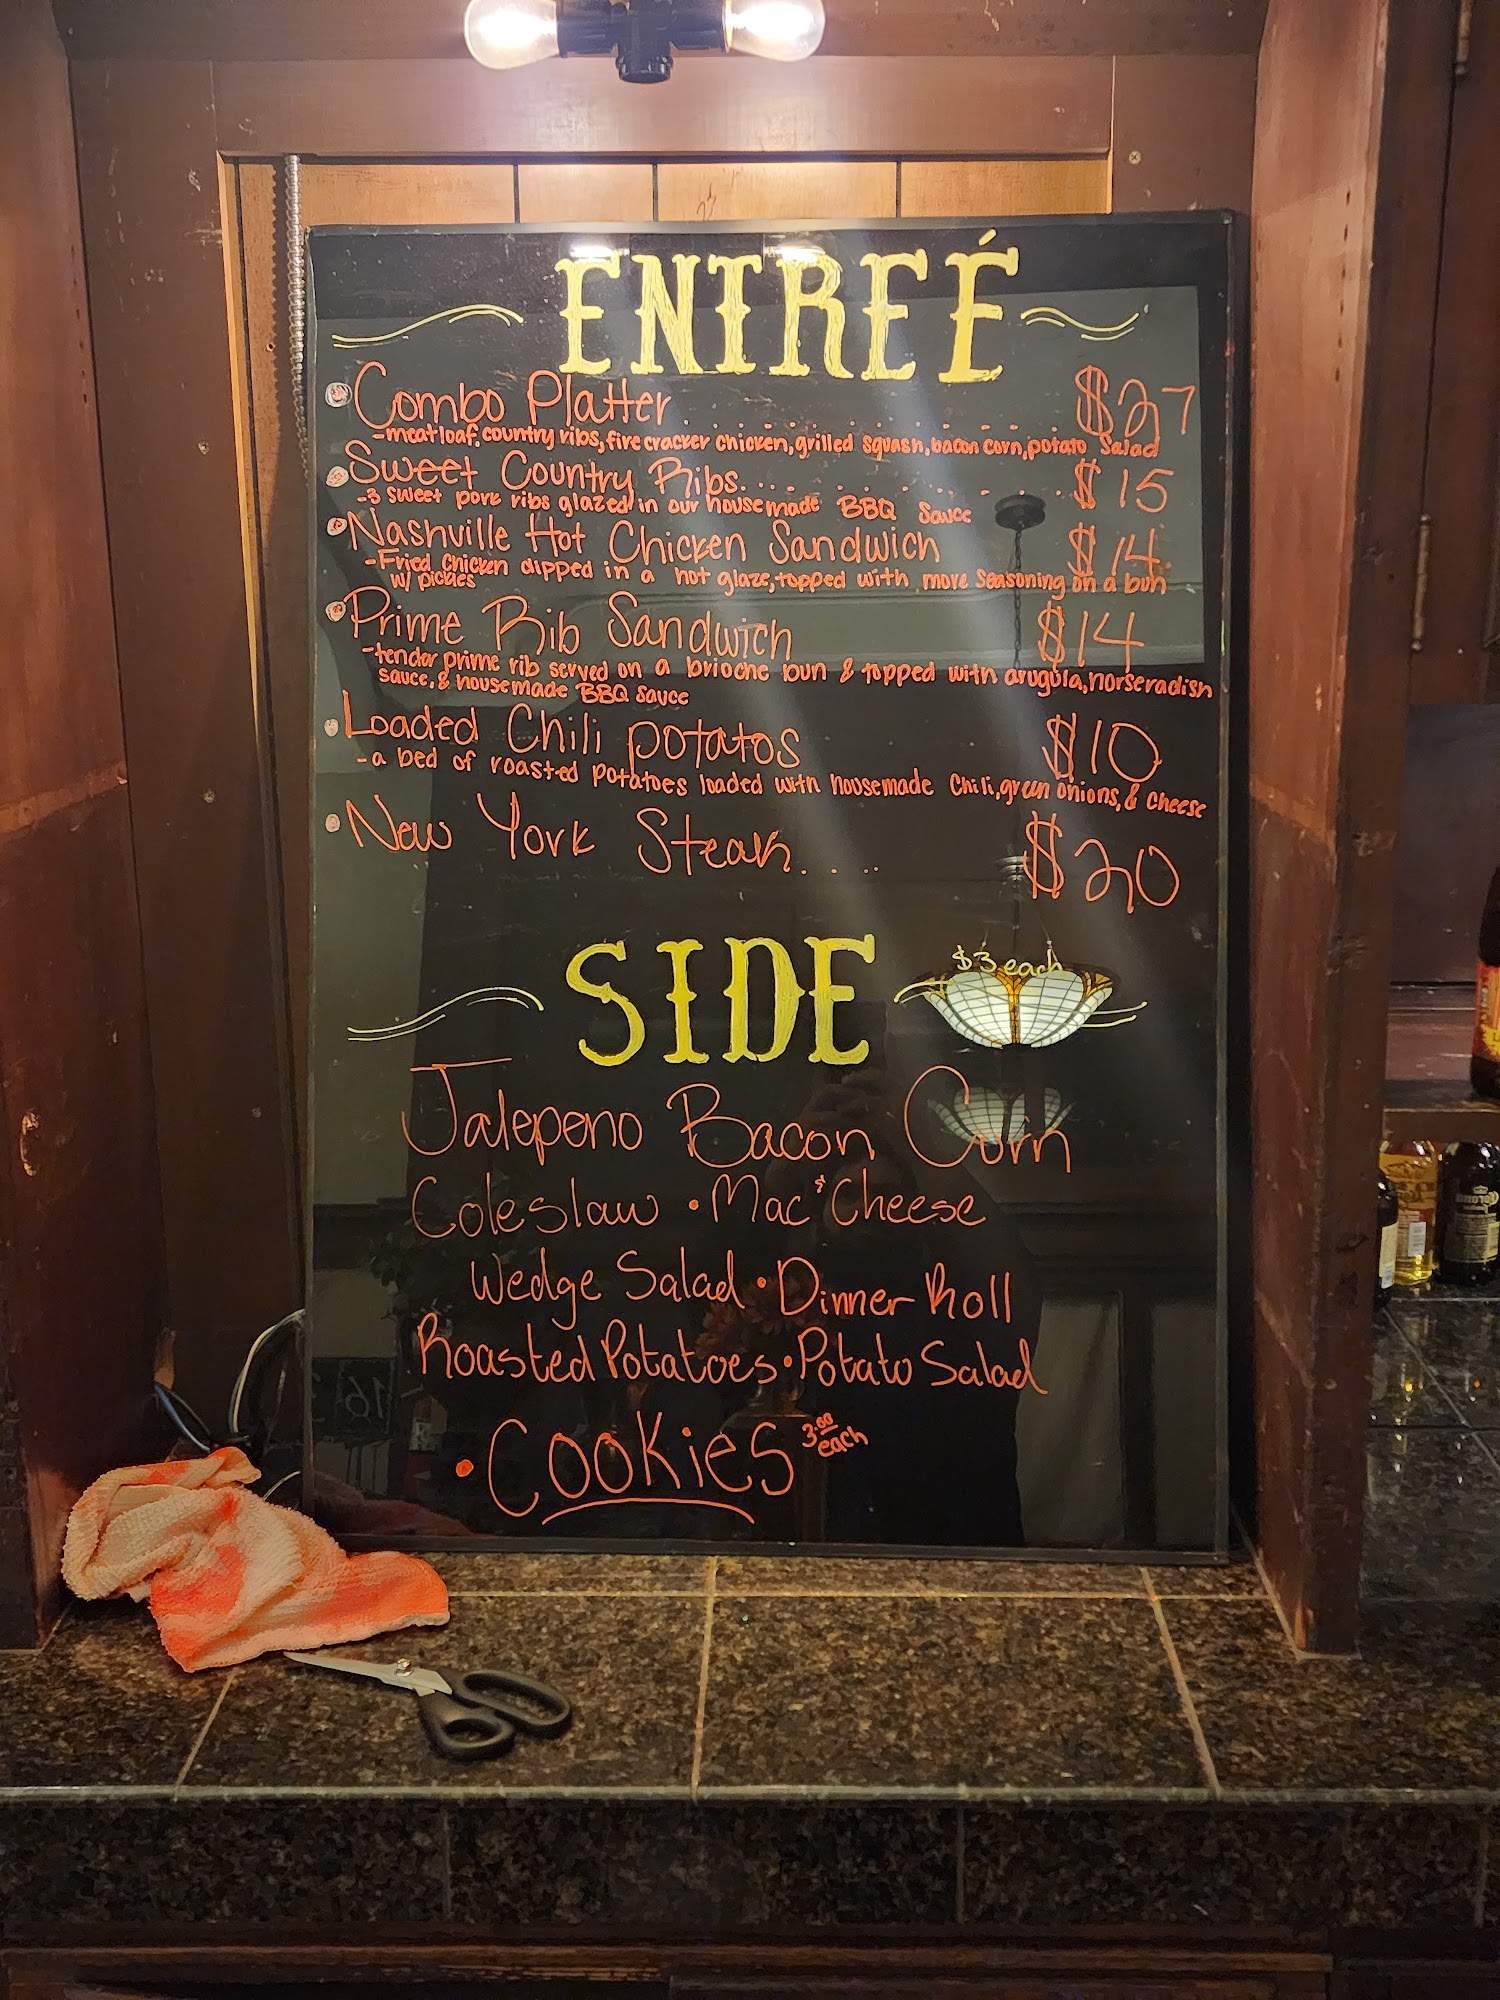 ENTREÉ
Combo Platter $27
-meatloaf, country ribs, firecracker chicken, grilled squash, bacon corn, potato Salad
Sweet Country Ribs............... $15
-3 sweet pork ribs glazed in our housemade BBQ Sauce
Nashville Hot Chicken Sandwich $14
-Fried Chicken dipped in a hot glaze, topped with more seasoning on a bun
w/ pickles
Prime Rib Sandwich $14
-tender prime rib served on a brioche bun & topped with arugula, horseradish
sauce, & housemade BBQ Sauce
Loaded Chili potatos $10
-a bed of roasted potatoes loaded with housemade Chili, green onions, & cheese
New York Steak.... $20
SIDE $3 each
Jalepeno Bacon Corn
Coleslaw • Mac & Cheese
Wedge Salad • Dinner Roll
Roasted Potatoes • Potato Salad
• Cookies 3.00 each
Corona